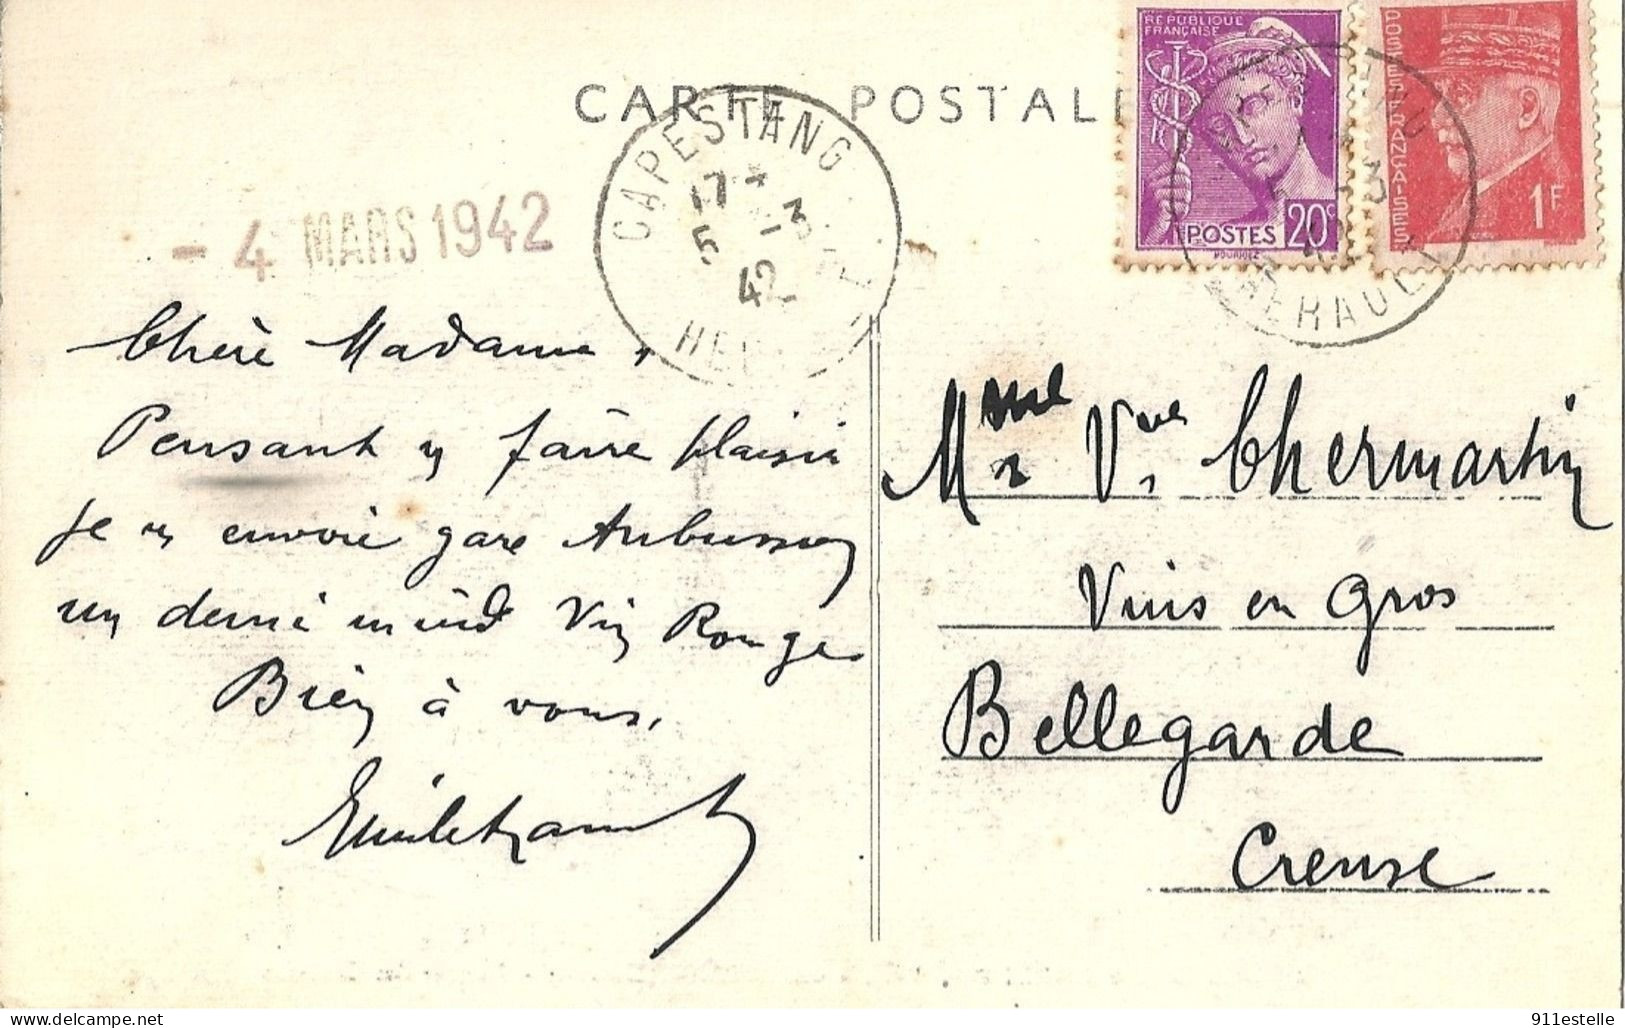 CARTE POSTALE
RÉPUBLIQUE
FRANÇAISE
POSTES 20c
POSTES FRANÇAISES
1F
CAPESTANG
17 *
5 -3
42
HERAULT
- 4 MARS 1942
Chère Madame,
Pensant y faire plaisir
je v envoie gare Aubusson
un demi muid Vin Rouge
Bien à vous,
Mme Vve Chermartin
Vins en Gros
Bellegarde
Creuse
911estelle